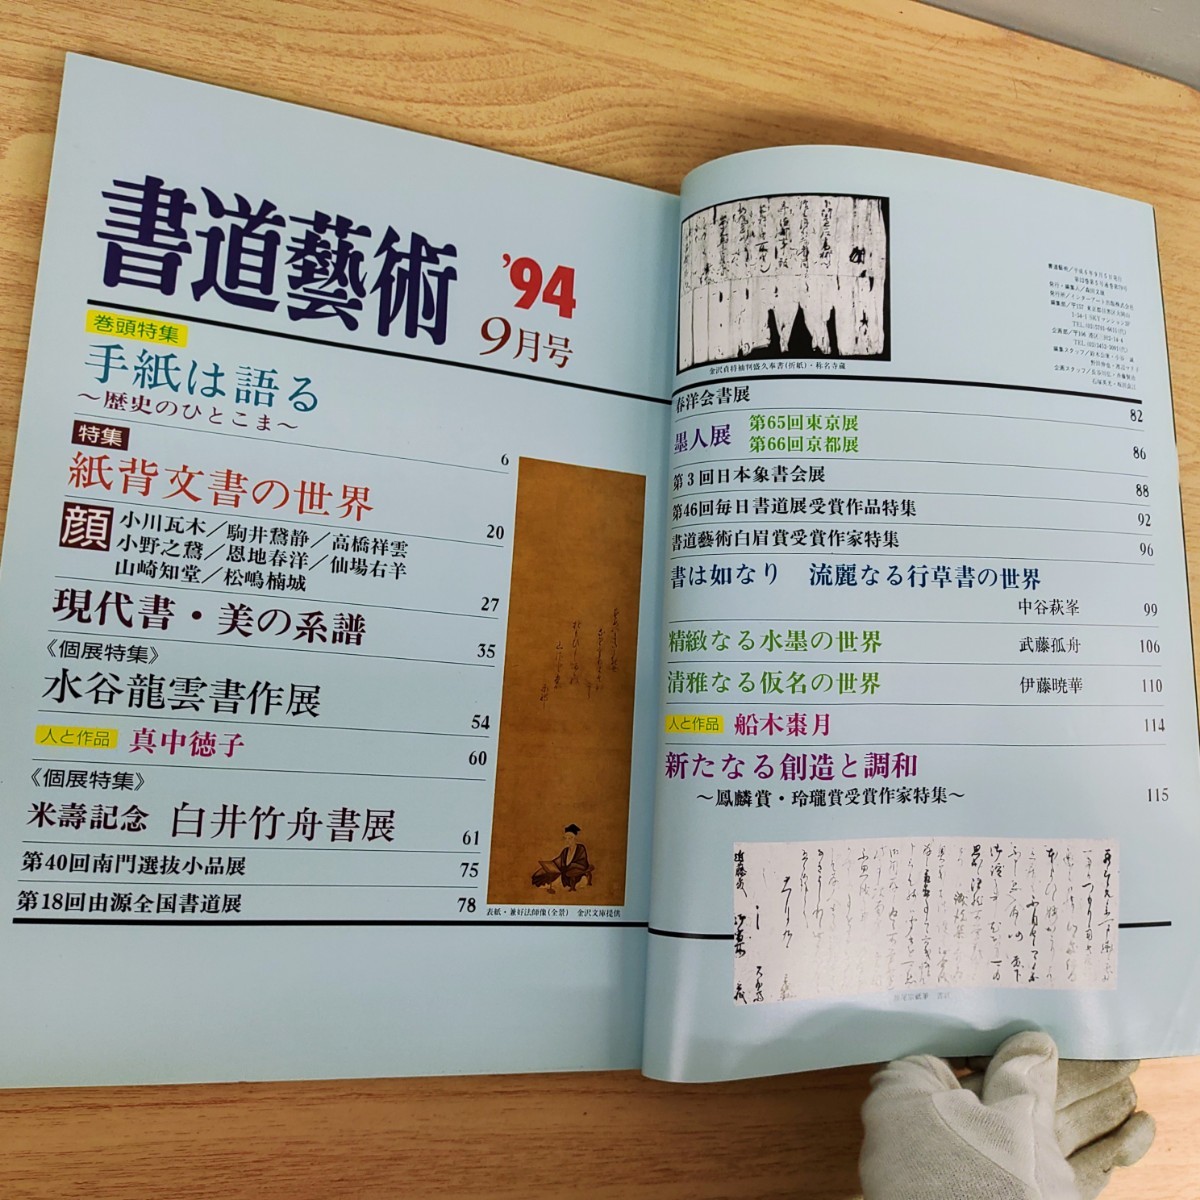 書道藝術
'94
9月号
巻頭特集
手紙は語る
〜歴史のひとこま〜
6
特集
紙背文書の世界
20
顔
小川瓦木／駒井鵞静／高橋祥雲
小野之鵞／恩地春洋／仙場右羊
山崎知堂／松嶋楠城
27
現代書・美の系譜
35
《個展特集》
水谷龍雲書作展
54
人と作品 真中徳子
60
《個展特集》
米壽記念 白井竹舟書展
61
第40回南門選抜小品展
75
第18回由源全国書道展
78
表紙・兼好法師像(全景) 金沢文庫提供
金沢貞将袖判盛久奉書(折紙)・称名寺蔵
春洋会書展
82
墨人展 第65回東京展
第66回京都展
86
第3回日本象書会展
88
第46回毎日書道展受賞作品特集
92
書道藝術白眉賞受賞作家特集
96
書は如なり 流麗なる行草書の世界
中谷萩峯 99
精緻なる水墨の世界 武藤孤舟 106
清雅なる仮名の世界 伊藤暁華 110
人と作品 船木棗月 114
新たなる創造と調和
〜鳳麟賞・玲瓏賞受賞作家特集〜 115